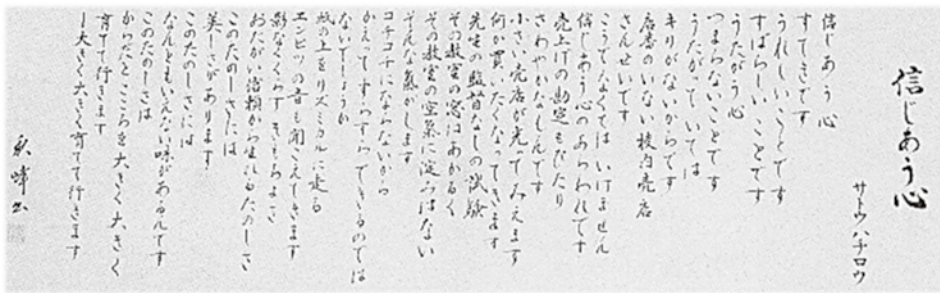 信じあう心
サトウハチロウ
信じあう心
すてきです
うれしいことです
すばらしいことです
うたがう心
つまらないことです
うたがっていては
キリがないからです
店番のいない校内売店
さんせいです
こうでなくてはいけません
信じあう心のあらわれです
売上げの勘定もぴたり
さわやかなしんです
小さい売店が光ってみえます
何か買いたくなってきます
先生の監督なしの試験
その教室の窓はあかるく
その教室の空気に淀みはない
そんな氣がします
コチコチにならないから
かえってすらすらできるのでは
ないでしょうか
紙の上をリズミカルに走る
エンピツの音も聞こえてきます
影なくくらす きもちよさ
おたがい信頼から生れるたのしさ
このたのしさには
美しさがあります
このたのしさには
なんともいえない味があるんです
このたのしさは
からだとこころを大きく大きく
育てて行きます
ー大きく大きく育てて行きます